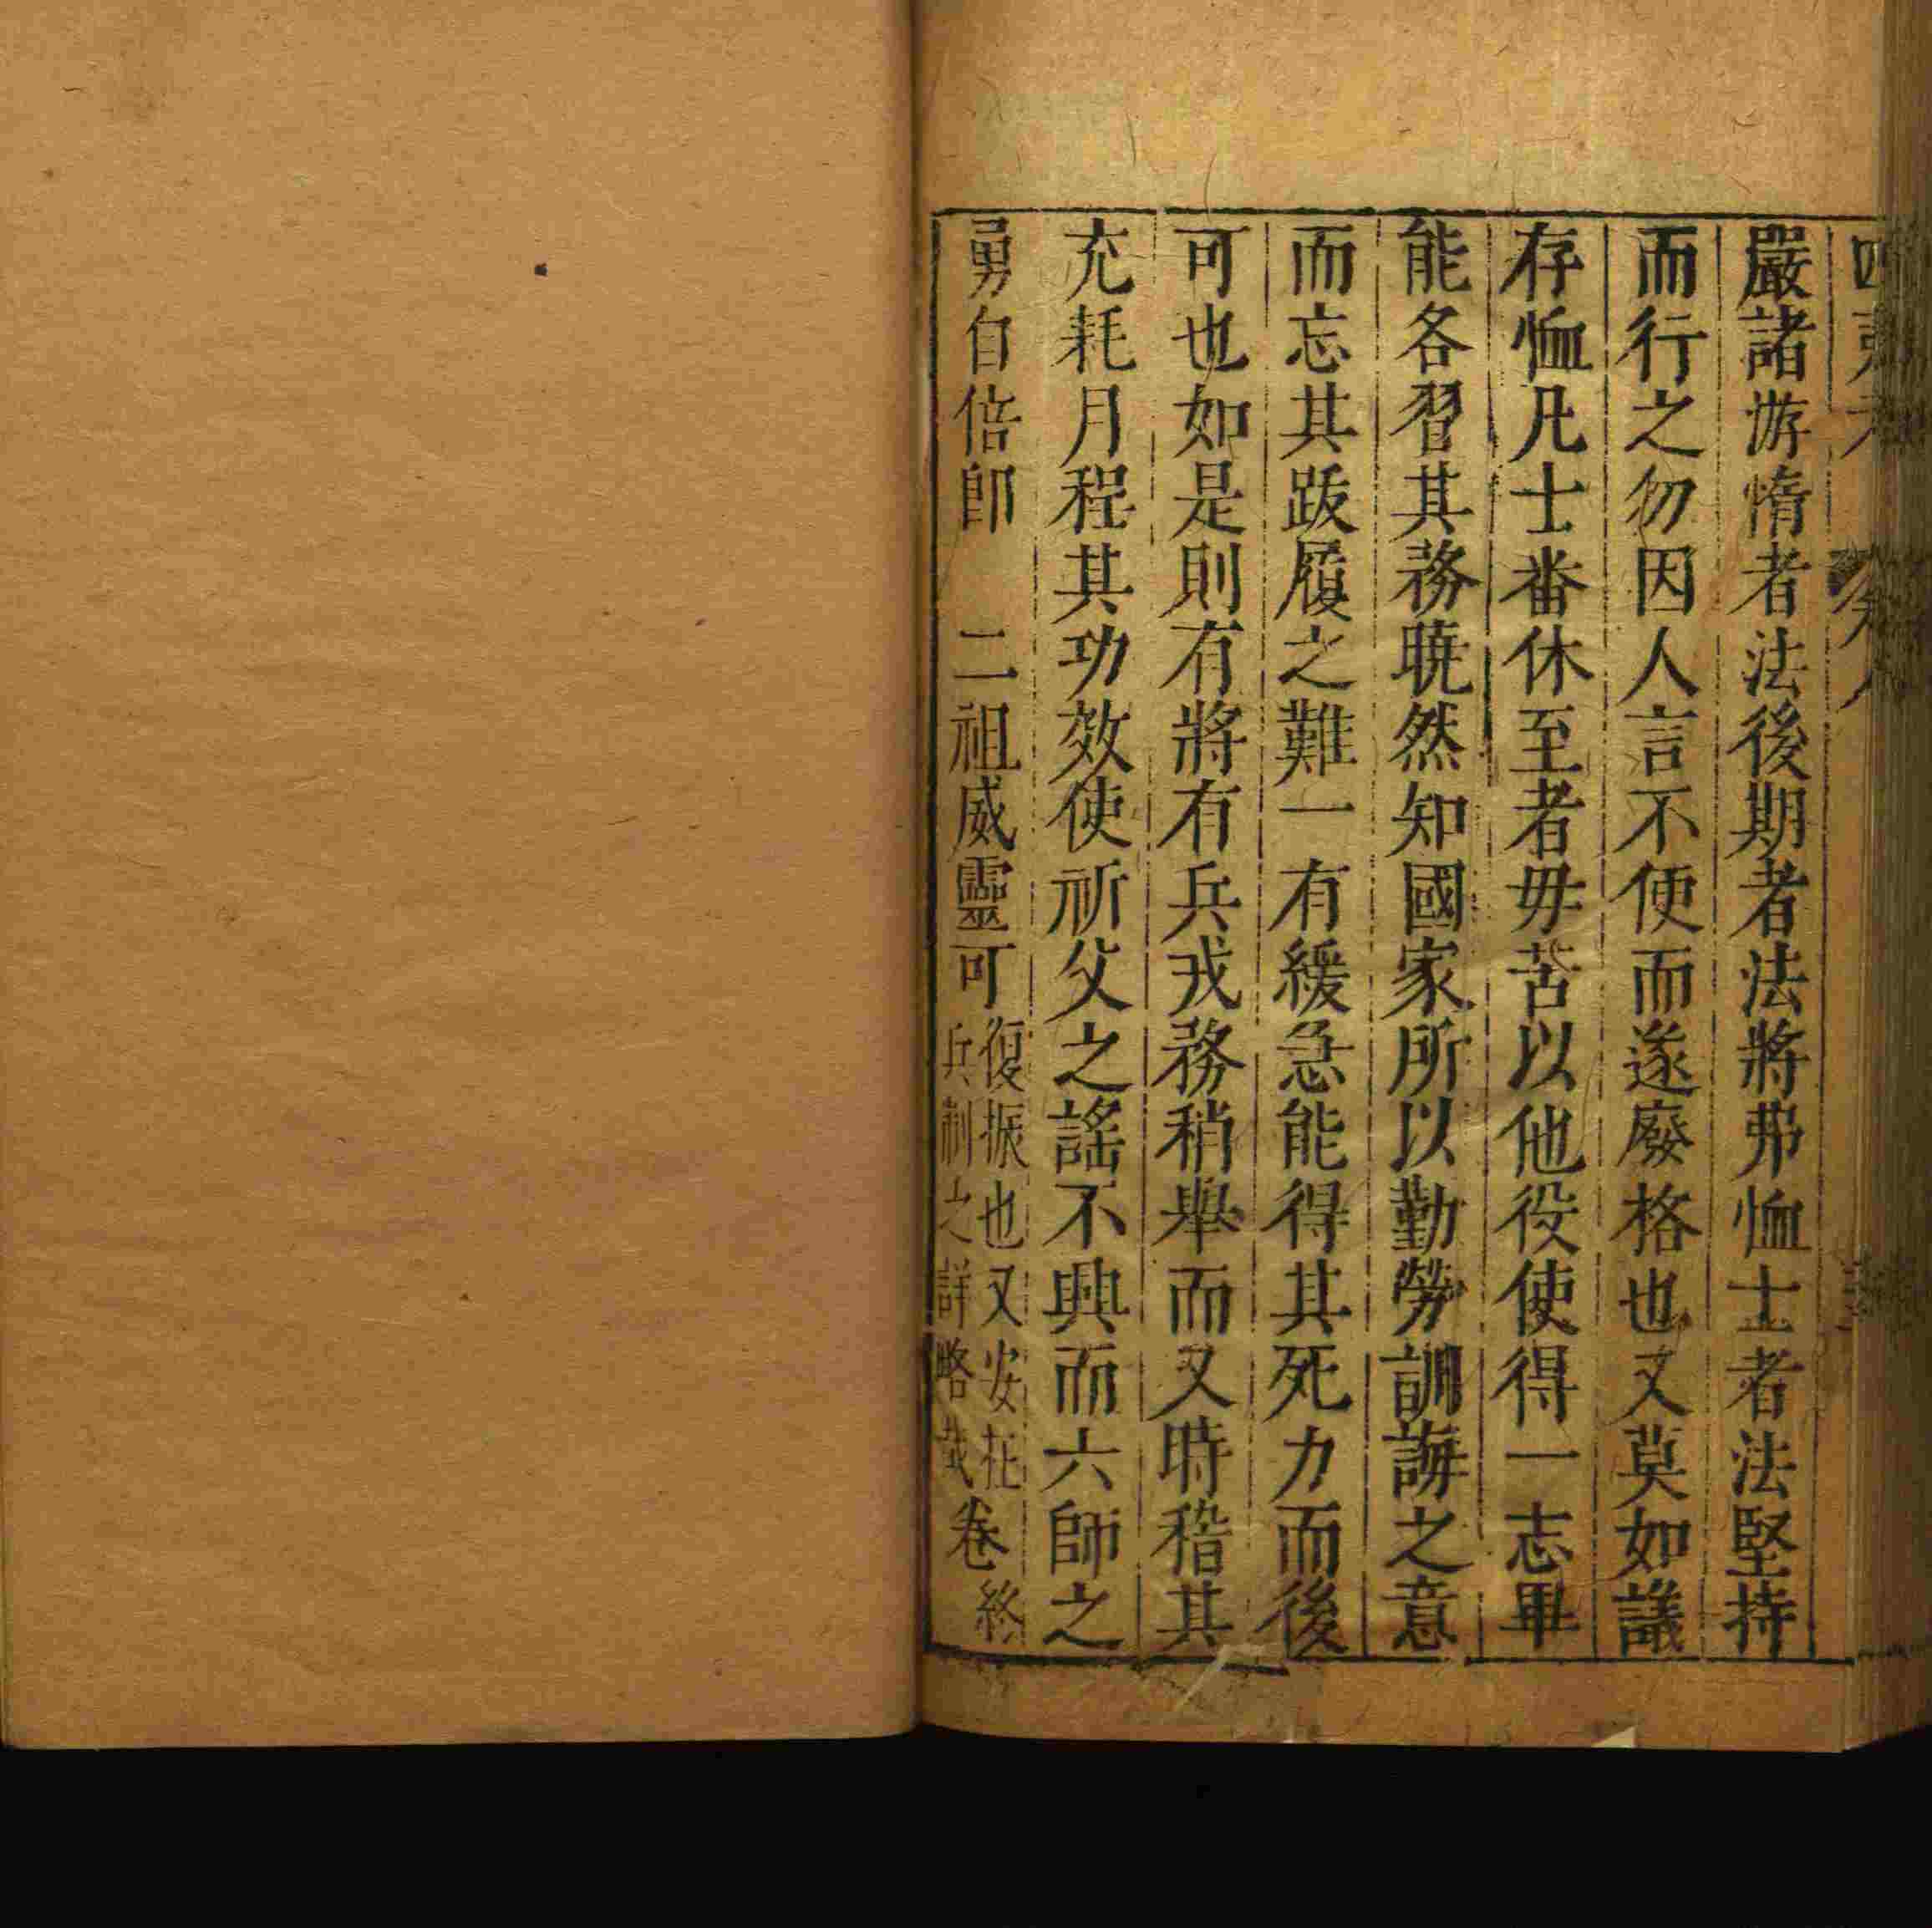 嚴諸游惰者法後期者法將弗恤士者法堅持
而行之勿因人言不便而遂廢格也又莫如議
存恤凡士番休至者毋苦以他役使得一志畢
能各習其務曉然知國家所以勤勞訓誨之意
而忘其跋履之難一有緩急能得其死力而後
可也如是則有將有兵戎務稍舉而又時稽其
充耗月程其功效使祈父之謠不興而六師之
勇自倍卽　二祖威靈可
復振也又安在
兵制之詳略哉
卷終